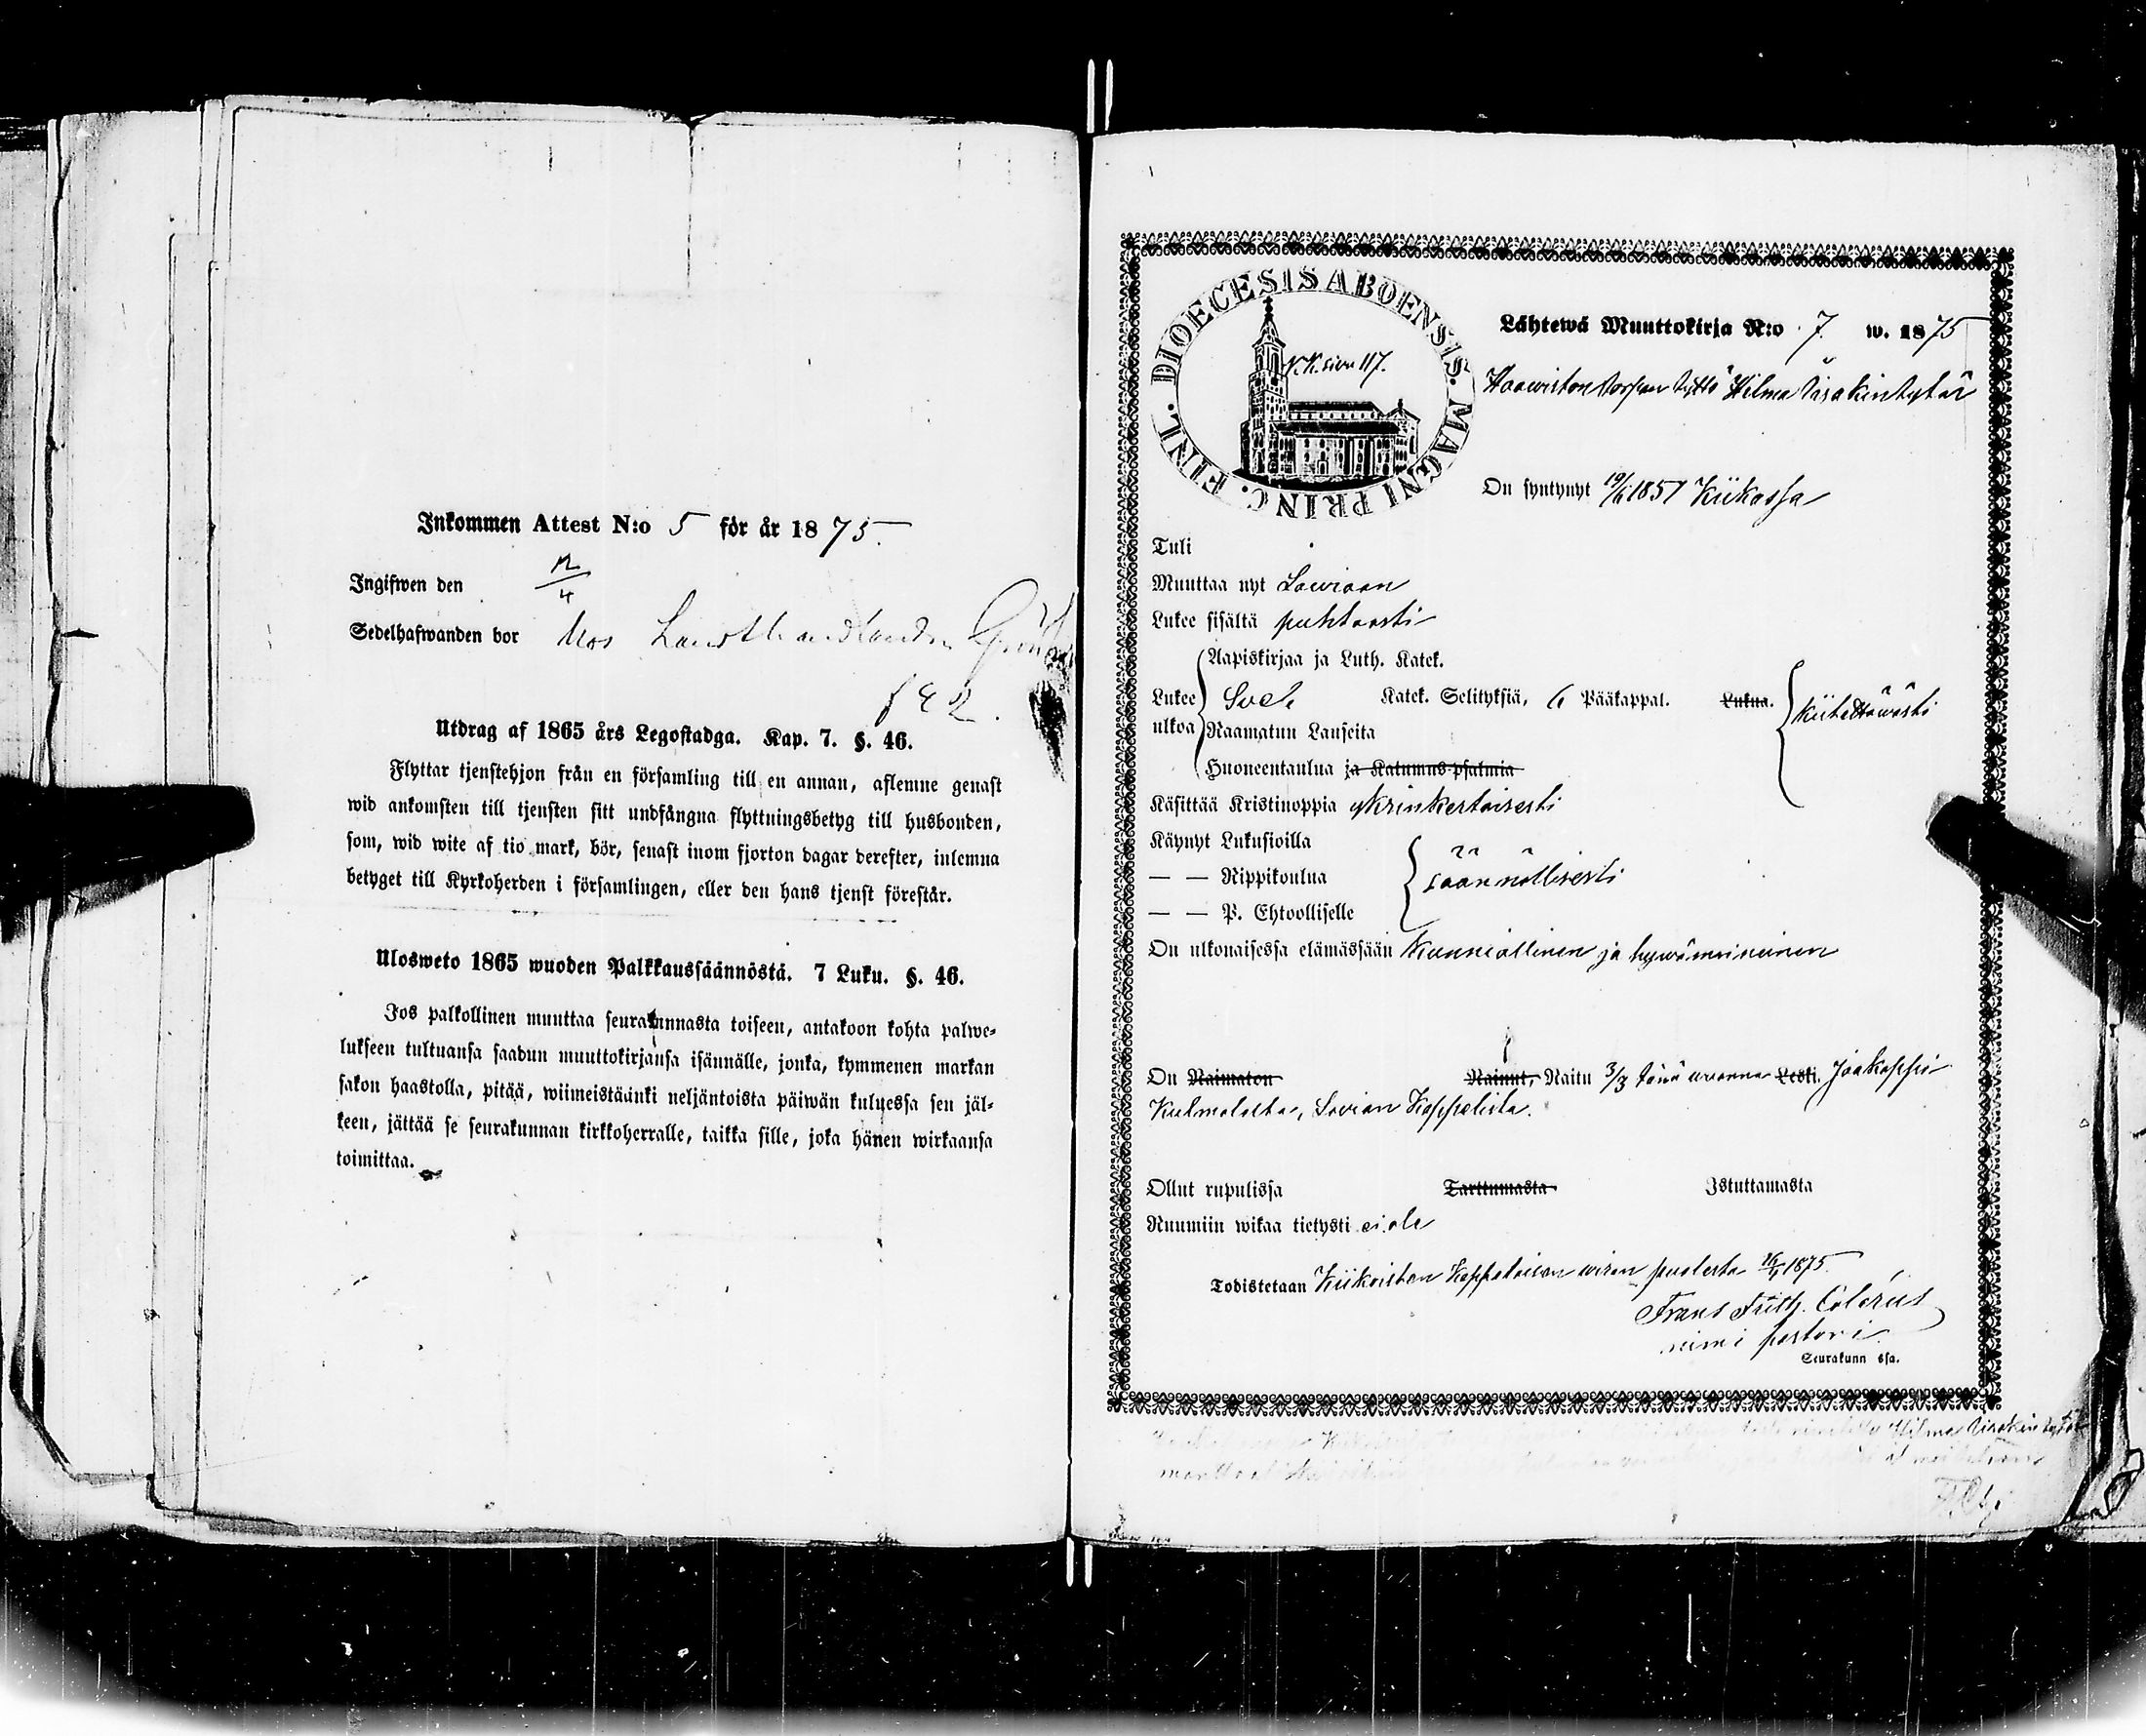 Inkommen Attest N:o 5 för år 1875.
Ingifwen den 12/4
Sedelhafwanden bor hos Landthandlanden
f 42.
Utdrag af 1865 års Legostadga. Kap. 7. §. 46.
Flyttar tjenstehjon från en församling till en annan, aflemne genast
wid ankomsten till tjensten sitt undfångna flyttningsbetyg till husbonden,
som, wid wite af tio mark, bör, senast inom fjorton dagar derefter, inlemna
betyget till Kyrkoherden i församlingen, eller den hans tjenst förestår.
Ulosweto 1865 wuoden Palkkaussäännöstä. 7 Luku. §. 46.
Jos palkollinen muuttaa seurakunnasta toiseen, antakoon kohta palwe-
lukseen tultuansa saadun muuttokirjansa isännälle, jonka, kymmenen markan
sakon haastolla, pitää, wiimeistäänki neljäntoista päiwän kuluessa sen jäl-
keen, jättää se seurakunnan kirkkoherralle, taikka sille, joka hänen wirkaansa
toimittaa.
FINL. DIOECESIS ABOENSIS. MAGNI PRINC.
R.K. sivu 117.
Lähtewä Muuttokirja N:o 7. w. 1875
Haawiston torpan tyttö Hilma Iisakintytär
On syntynyt 19/6 1857 Kiikassa
Tuli
Muuttaa nyt Lawiaan
Lukee sisältä puhtaasti
Aapiskirjaa ja Luth. Katek.
Lukee ulkoa Sveb. Katek. Selityksiä, 6 Pääkappal. Lukua. kiitettäwästi
Raamatun Lauseita
Huoneentaulua ja Katumus-psalmia
Käsittää Kristinoppia yksinkertaisesti
Käynyt Lukusioilla
— — Rippikoulua säännöllisesti
— — P. Ehtoolliselle
On ulkonaisessa elämässään kunniallinen ja hywämaineinen
On Naimaton Nainut, Naitu 3/3 tänä wuonna Leski. Jaakoppi
Kulmalalta, Lavian Kappelista.
Ollut rupulissa Tarttumasta Istuttamasta
Ruumiin wikaa tietysti ei ole
Todistetaan Kiikoisten Kappalaisen wiran puolesta 1875.
Frans Frith. Colérus
nimi pastori.
Seurakunn ssa.
Hilma Iisakintytär